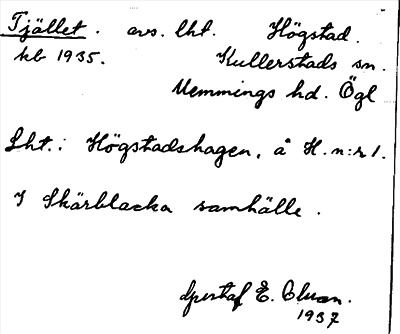 Tjället. avs. lht. Högstad.
kb 1935. Kullerstads sn.
Memmings hd. Ögl
Lht.: Högstadshagen, å H. n:r 1.
I Skärblacka samhälle.
E.
1937